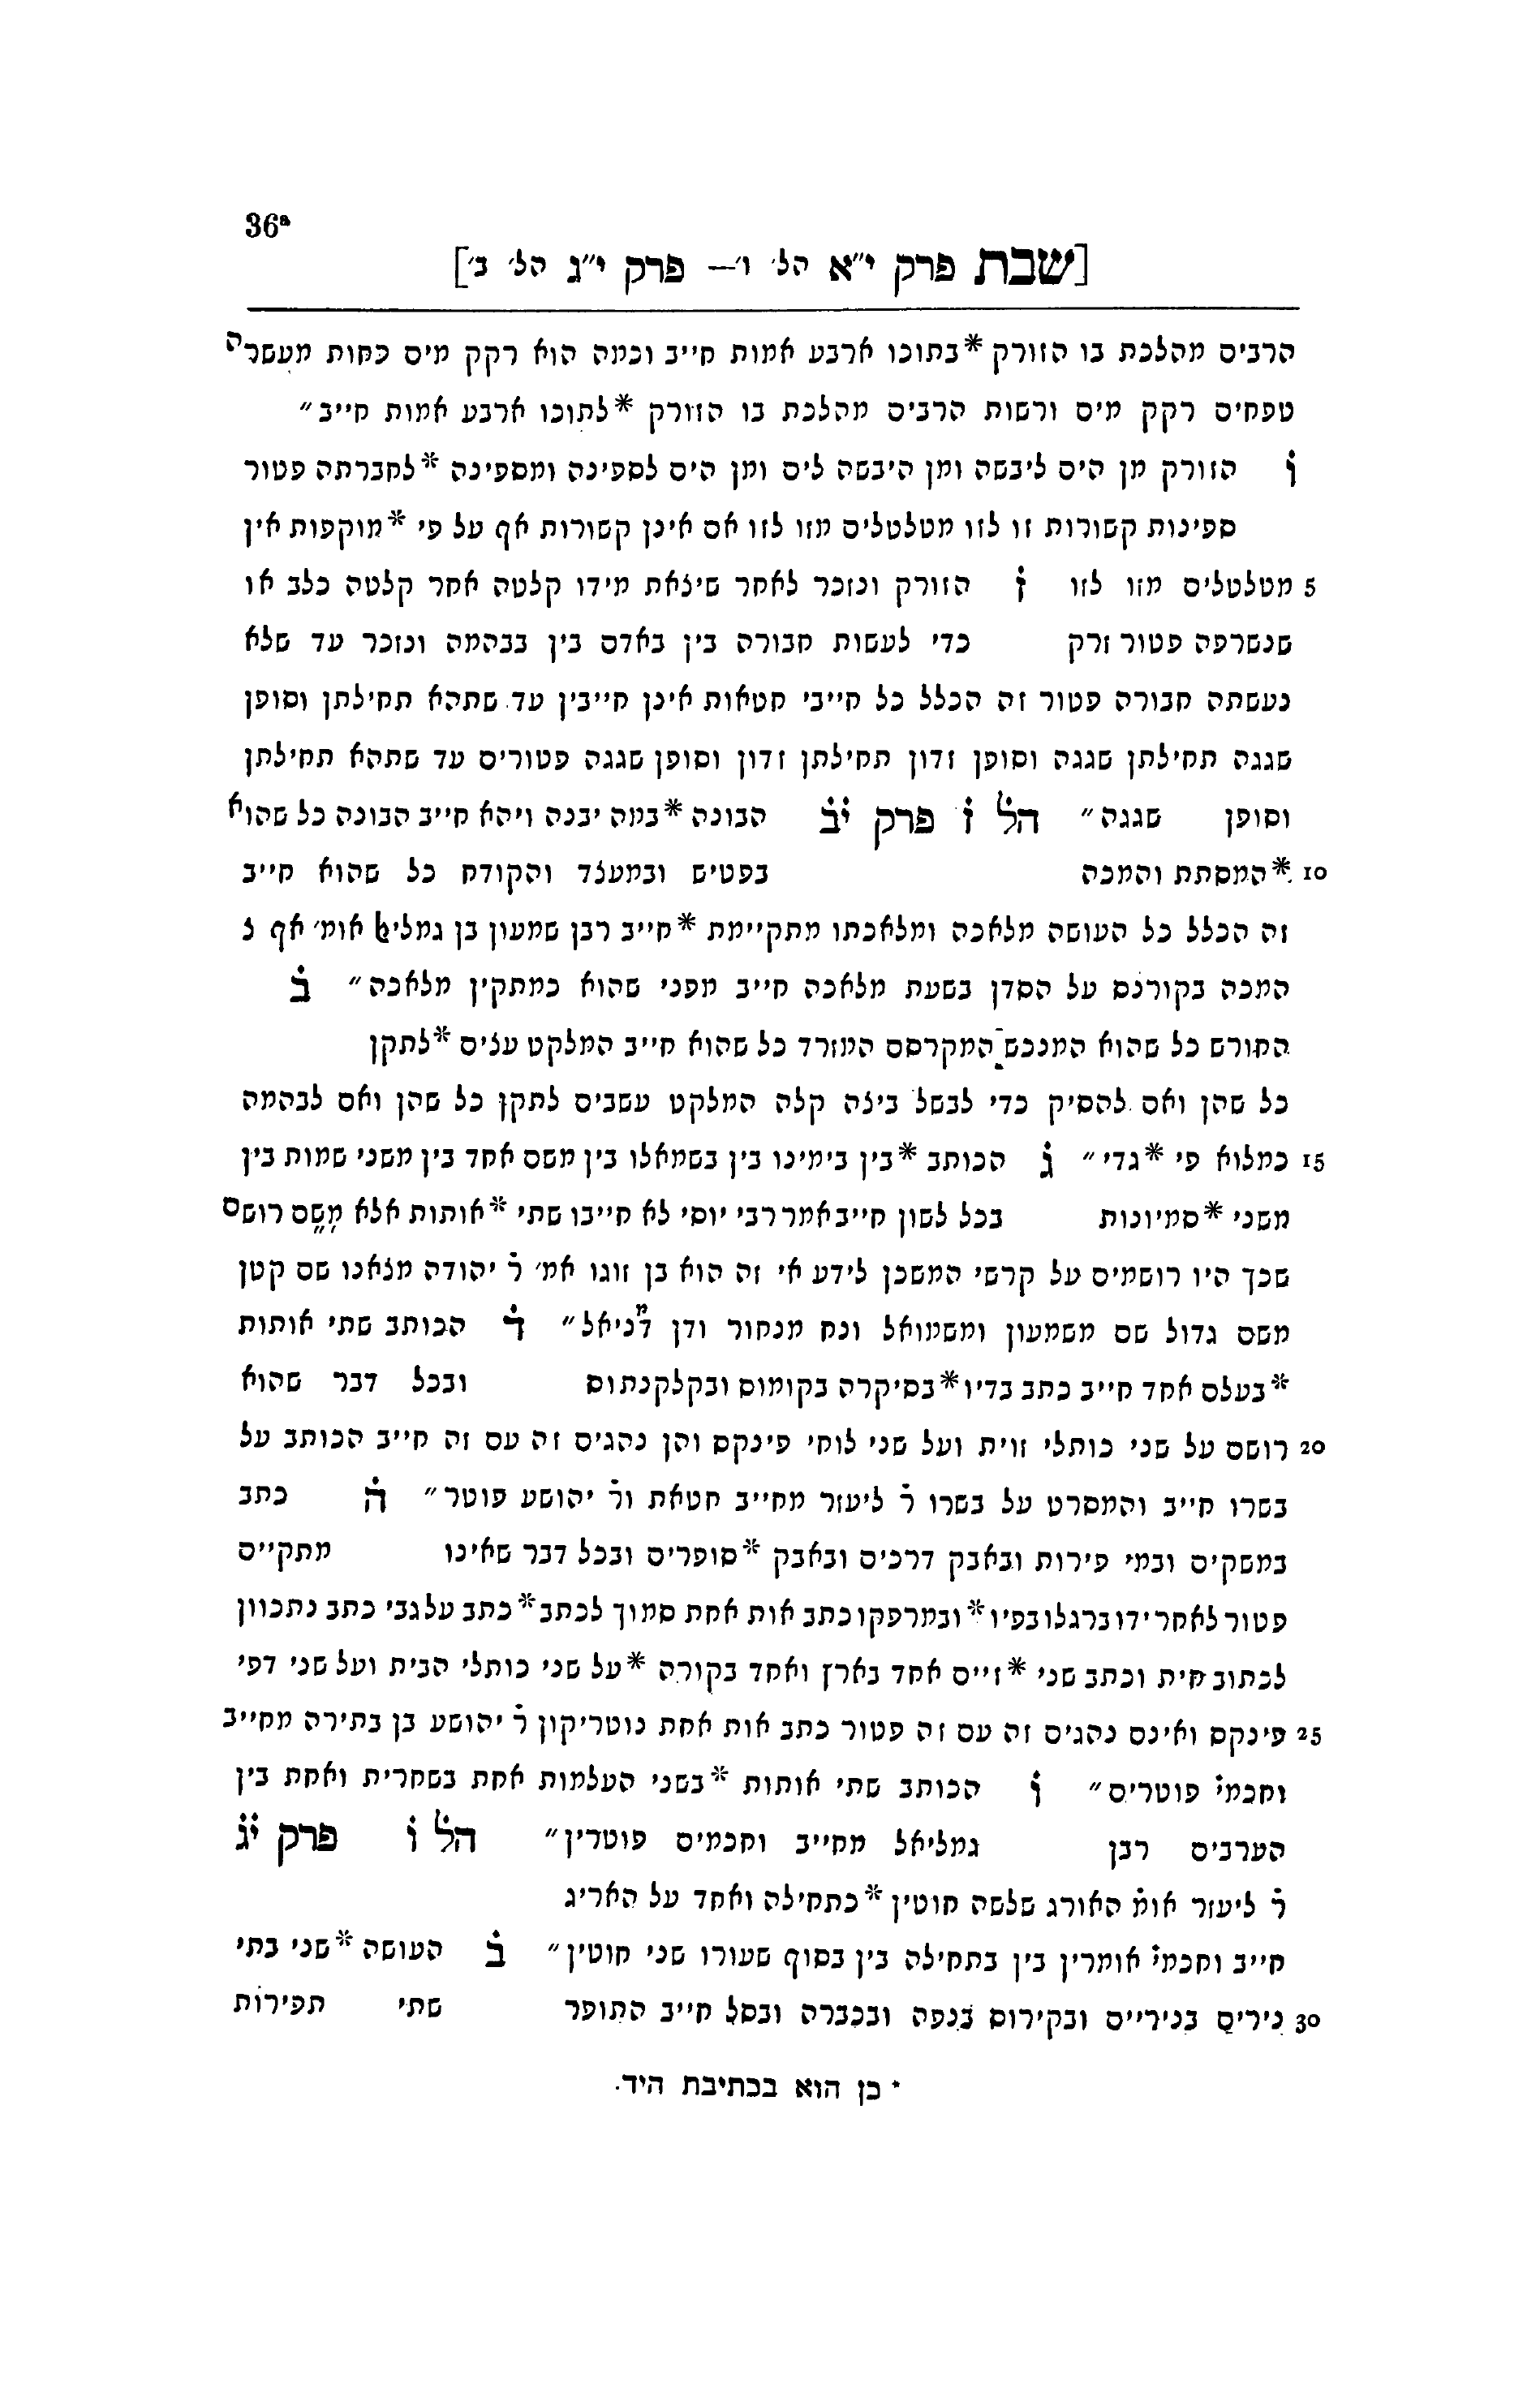 36ª
[שבת פרק י״א הל׳ ו׳— פרק י״ג הל׳ ב׳]
הרבים מהלכת בו הזורק *בתוכו ארבע אמות חייב וכמה הוא רקק מים פחות מעשרה
טפחים רקק מים ורשות הרבים מהלכת בו הזורק *לתוכו ארבע אמות חייב״
ו הזורק מן הים ליבשה ומן היבשה לים ומן הים לספינה ומספינה *לחברתה פטור
ספינות קשורות זו לזו מטלטלים מזו לזו אם אינן קשורות אף על פי *מוקפות אין
5 מטלטלים מזו לזו ז הזורק ונזכר לאחר שיצאת מידו קלטה אחר קלטה כלב או
שנשרפה פטור זרק כדי לעשות חבורה בין באדם בין בבהמה ונזכר עד שלא
נעשתה חבורה פטור זה הכלל כל חייבי חטאות אינן חייבין עד שתהא תחילתן וסופן
שגגה תחילתן שגגה וסופן זדון תחילתן זדון וסופן שגגה פטורים עד שתהא תחילתן
וסופן שגגה״ הל ז פרק יב הבונה *במה יבנה ויהא חייב הבונה כל שהוא
10 *המסתת והמכה בפטיש ובמעצד והקודח כל שהוא חייב
זה הכלל כל העושה מלאכה ומלאכתו מתקיימת *חייב רבן שמעון בן גמליאל אומ׳ אף צ
המכה בקורנס על הסדן בשעת מלאכה חייב מפני שהוא כמתקין מלאכה״ ב
החורש כל שהוא המנכש המקרסם המזרד כל שהוא חייב המלקט עצים *לתקן
כל שהן ואם להסיק כדי לבשל ביצה קלה המלקט עשבים לתקן כל שהן ואם לבהמה
15 כמלוא פי *גדי״ ג הכותב *בין בימינו בין בשמאלו בין משם אחד בין משני שמות בין
משני *סמיונות בכל לשון חייב אמר רבי יוסי לא חייבו שתי *אותות אלא משם רושם
שכך היו רושמים על קרשי המשכן לידע אי זה הוא בן זוגו אמ׳ ר׳ יהודה מצאנו שם קטן
משם גדול שם משמעון ומשמואל ונח מנחור ודן מדניאל״ ד הכותב שתי אותות
*בעלם אחד חייב כתב בדיו *בסיקרה בקומוס ובקלקנתוס ובכל דבר שהוא
20 רושם על שני כותלי זוית ועל שני לוחי פינקס והן נהגים זה עם זה חייב הכותב על
בשרו חייב והמסרט על בשרו ר׳ ליעזר מחייב חטאת ור׳ יהושע פוטר״ ה כתב
במשקים ובמי פירות ובאבק דרכים ובאבק *סופרים ובכל דבר שאינו מתקיים
פטור לאחר ידו ברגלו בפיו *ובמרפקו כתב אות אחת סמוך לכתב *כתב על גבי כתב נתכוון
לכתוב חית וכתב שני *זיים אחד בארץ ואחד בקורה *על שני כותלי הבית ועל שני דפי
25 פינקס ואינם נהגים זה עם זה פטור כתב אות אחת נוטריקון ר׳ יהושע בן בתירה מחייב
וחכמי׳ פוטרים״ ו הכותב שתי אותות *בשני העלמות אחת בשחרית ואחת בין
הערבים רבן גמליאל מחייב וחכמים פוטרין״ הל ו פרק יג
ר׳ ליעזר אומ׳ האורג שלשה חוטין *כתחילה ואחד על האריג
חייב וחכמי׳ אומרין בין בתחילה בין בסוף שעורו שני חוטין״ ב העושה *שני בתי
30 נירים בניריים ובקירוס בנפה ובכברה ובסל חייב התופר שתי תפירות
* כן הוא בכתיבת היד.